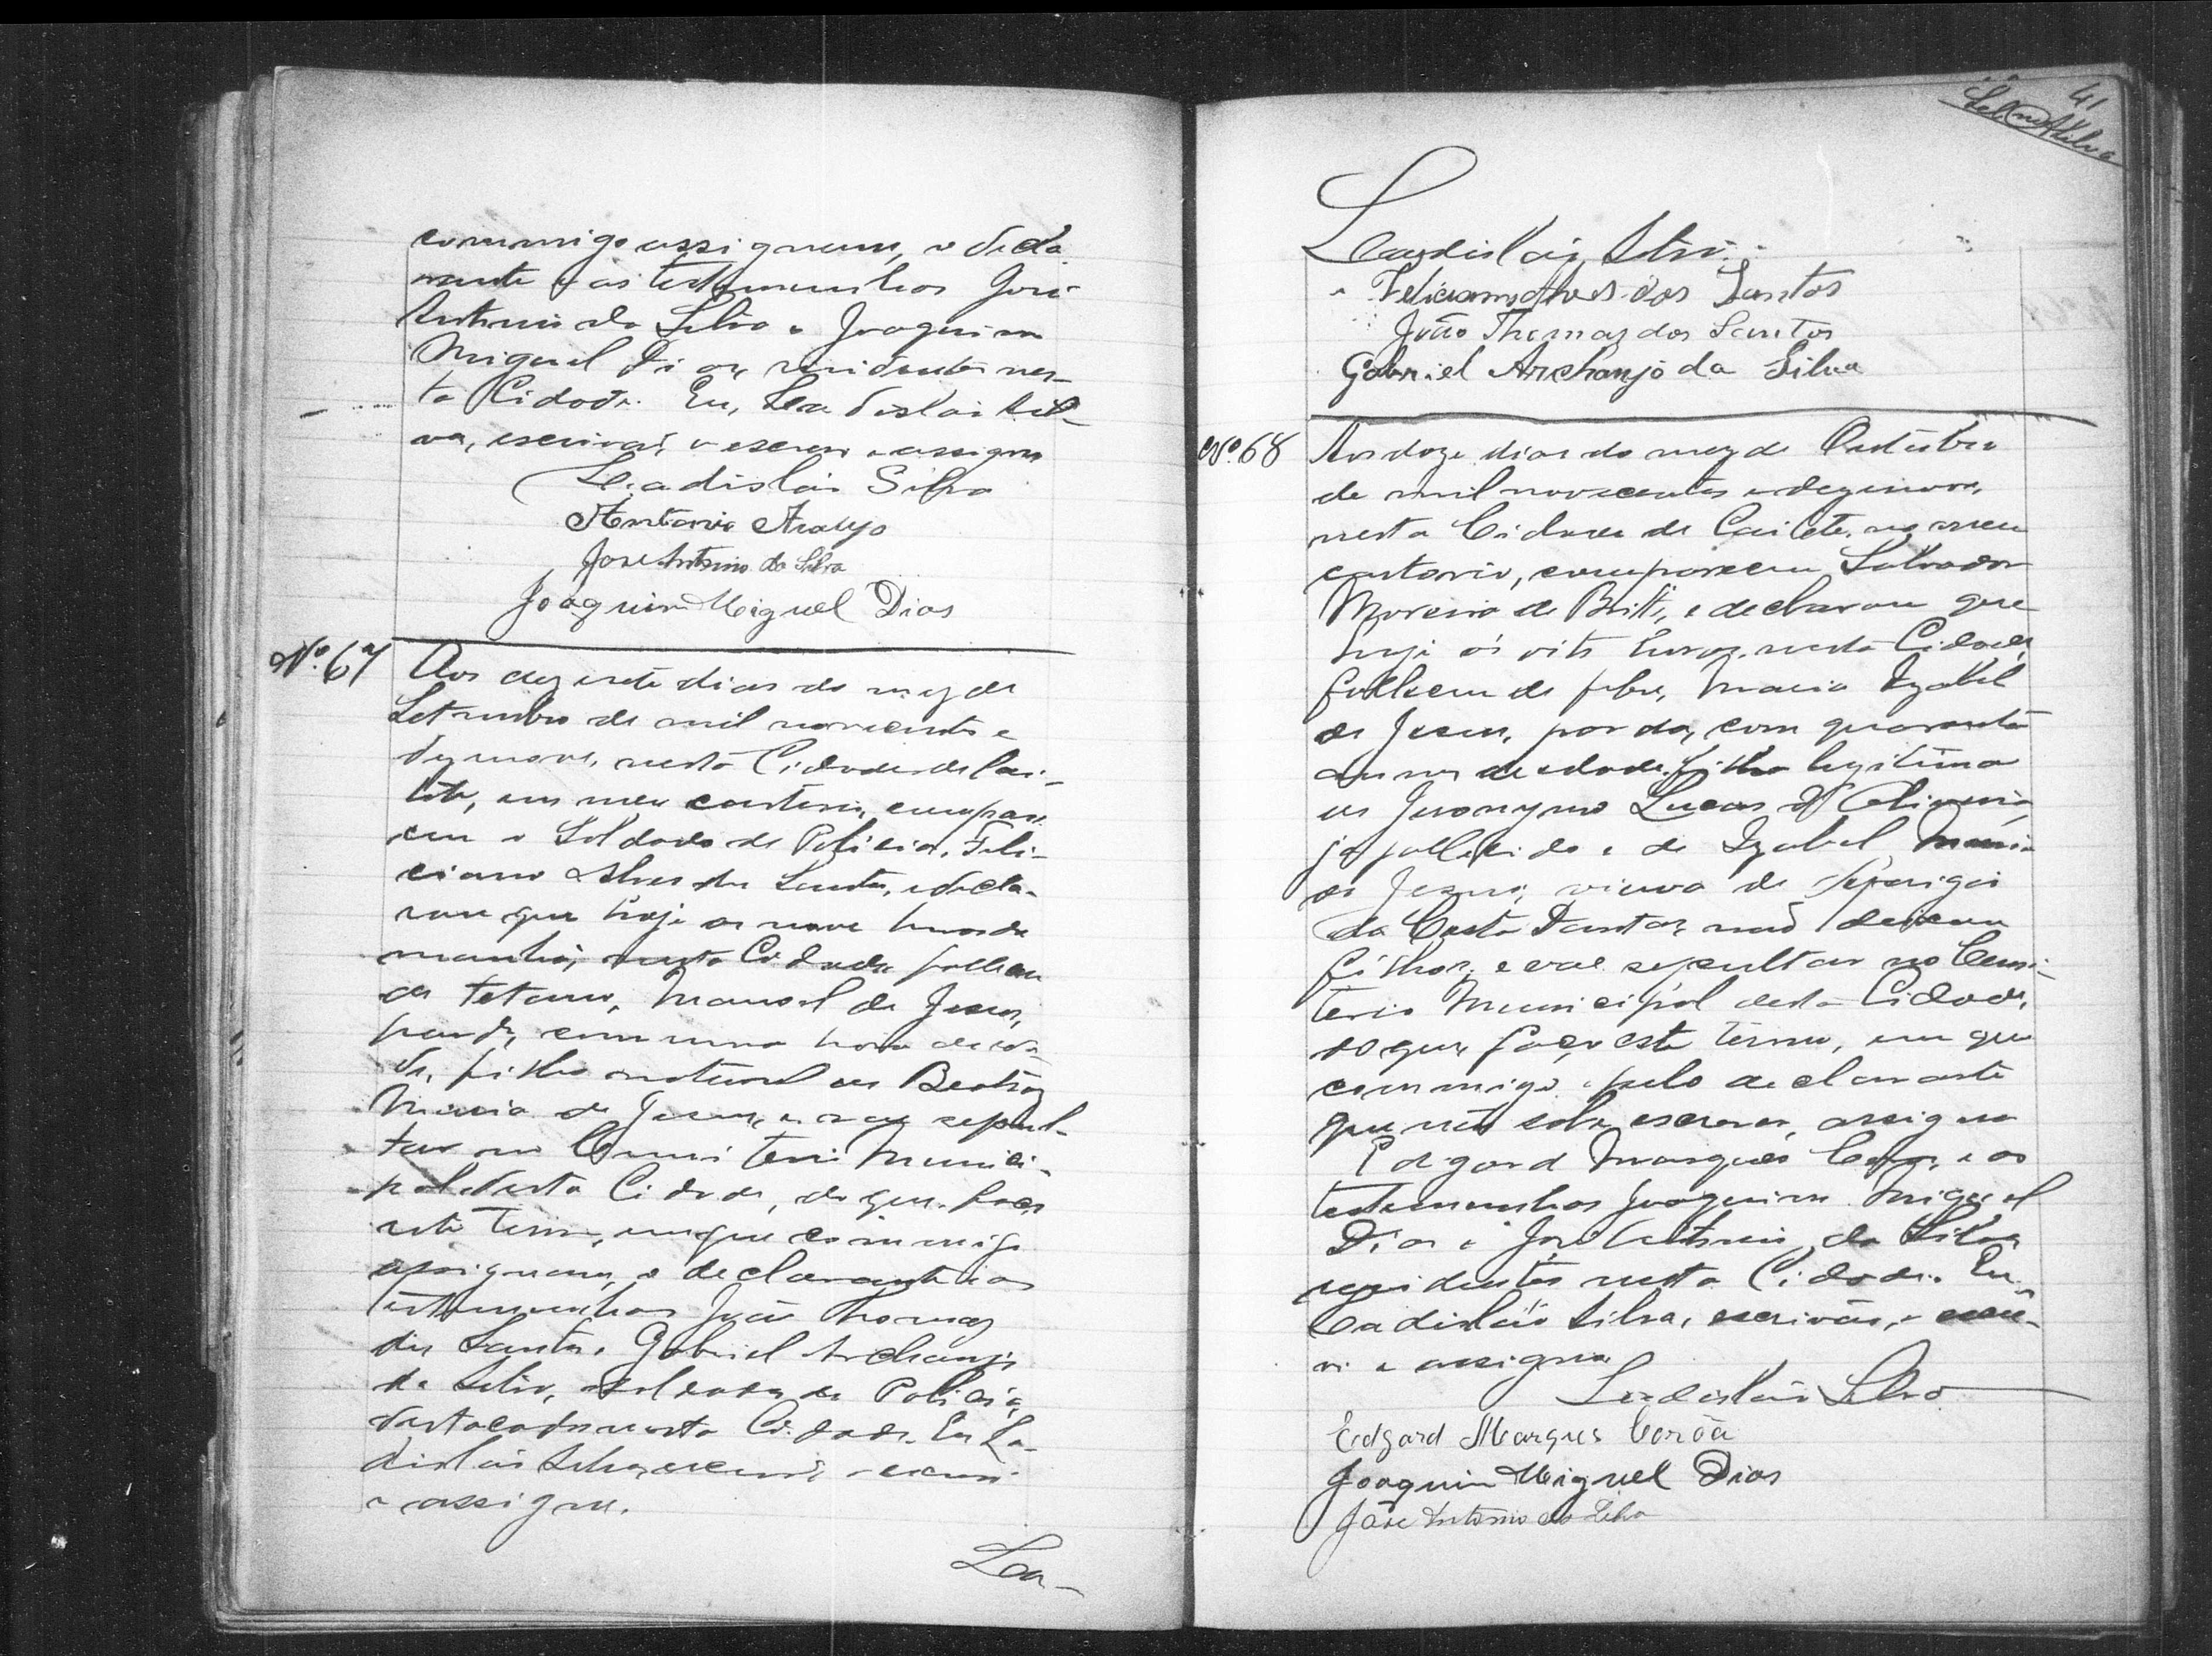 commigo assignam, o decla
rante e as testemunhas José
Antonio da Silva e Joaquim
Miguel Dias, residentes nes-
ta Cidade. Eu, Leadislau Sil-
va, escrivão, o escrevi e assigno
Leadislau Silva
Antonio Araujo
Jose Antonio da Silva
Joaquim Miguel Dias
Nº. 67
Aos dezesete dias do mez de
Setembro de mil novecentos e
dezenove, nesta Cidade de Cai-
teté, em meu cartorio, compare
ceu o Soldado de Policia, Feli-
ciano Alves dos Santos, e decla-
rou que hoje as nove horas da
manhã, nesta Cidade falleceu
de tetano, Manoel de Jesus,
pardo, com uma hora de ida-
de, filho natural de Beatriz
Maria de Jesus, e vae sepul-
tar no Cemiterio Munici-
pal desta Cidade, do que faço
este termo, em que commigo
assignam, o declarante e as
testemunhas João Thomaz
dos Santos e Gabriel Archanjo
da Silva, soldados de Policia,
destacados nesta Cidade. Eu La-
dislau Silva, escrivão, o escrevi
e assigno.
Lea-
41
Leadislau Silva
Feliciano Alves dos Santos
João Thomaz dos Santos
Gabriel Archanjo da Silva
Nº. 68
Aos doze dias do mez de Outubro
de mil novecentos e dezenove,
nesta Cidade de Caiteté, no meu
cartorio, compareceu Salvador
Moreira de Britto, e declarou que
hoje ás oito horas, nesta Cidade,
falleceu de febre, Maria Izabel
de Jesus, parda, com quarenta
annos de edade, filha legitima
de Jeronymo Lucas d'Oliveira,
já fallecido e de Izabel Maria
de Jesus, viuva de
da Costa Dantas, não deixou
filhos, e vae sepultar no Cemi-
terio Municipal desta Cidade,
do que, faço este termo, em que
commigo e pelo declarante
que não sabe escrever, assigna
Edgard Marques Coroa, e as
testemunhas Joaquim Miguel
Dias e José Antonio da Silva
residentes nesta Cidade. Eu
Leadislau Silva, escrivão, o escre-
vi e assigno
Leadislau Silva
Edgard Marques Corôa
Joaquim Miguel Dias
José Antonio da Silva